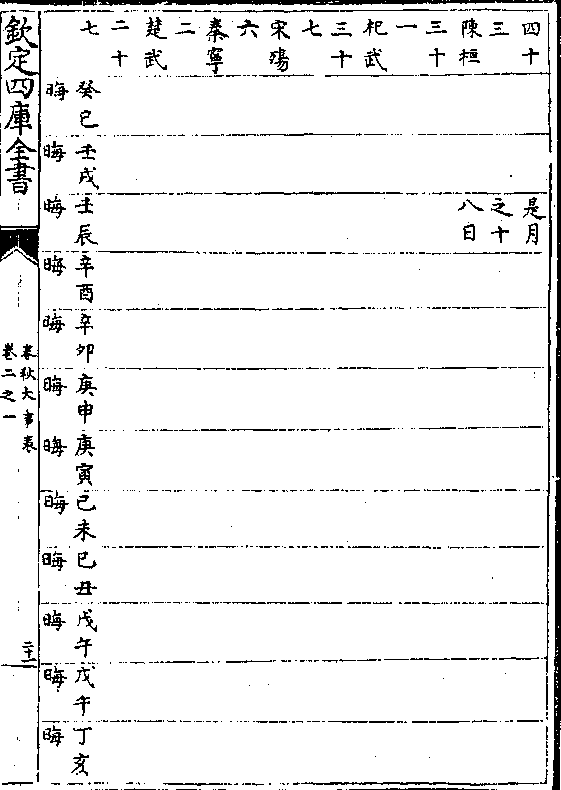 四十
三
陳桓
三十
一
杞武
三十
七
宋殤
六
秦寧
二
楚武
二十
七
癸巳
晦
壬戌
晦
是月
之十
八日
壬辰
晦
辛酉
晦
辛卯
晦
庚申
晦
庚寅
晦
己未
晦
己丑
晦
戊午
晦
戊午
晦
丁亥
晦
欽定四庫全書
春秋大事表
卷二之一
二十一